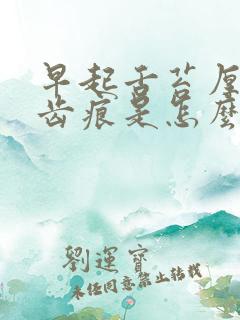 早起舌苔厚
齿痕是怎麽
劉運寶
未经同意禁止转载